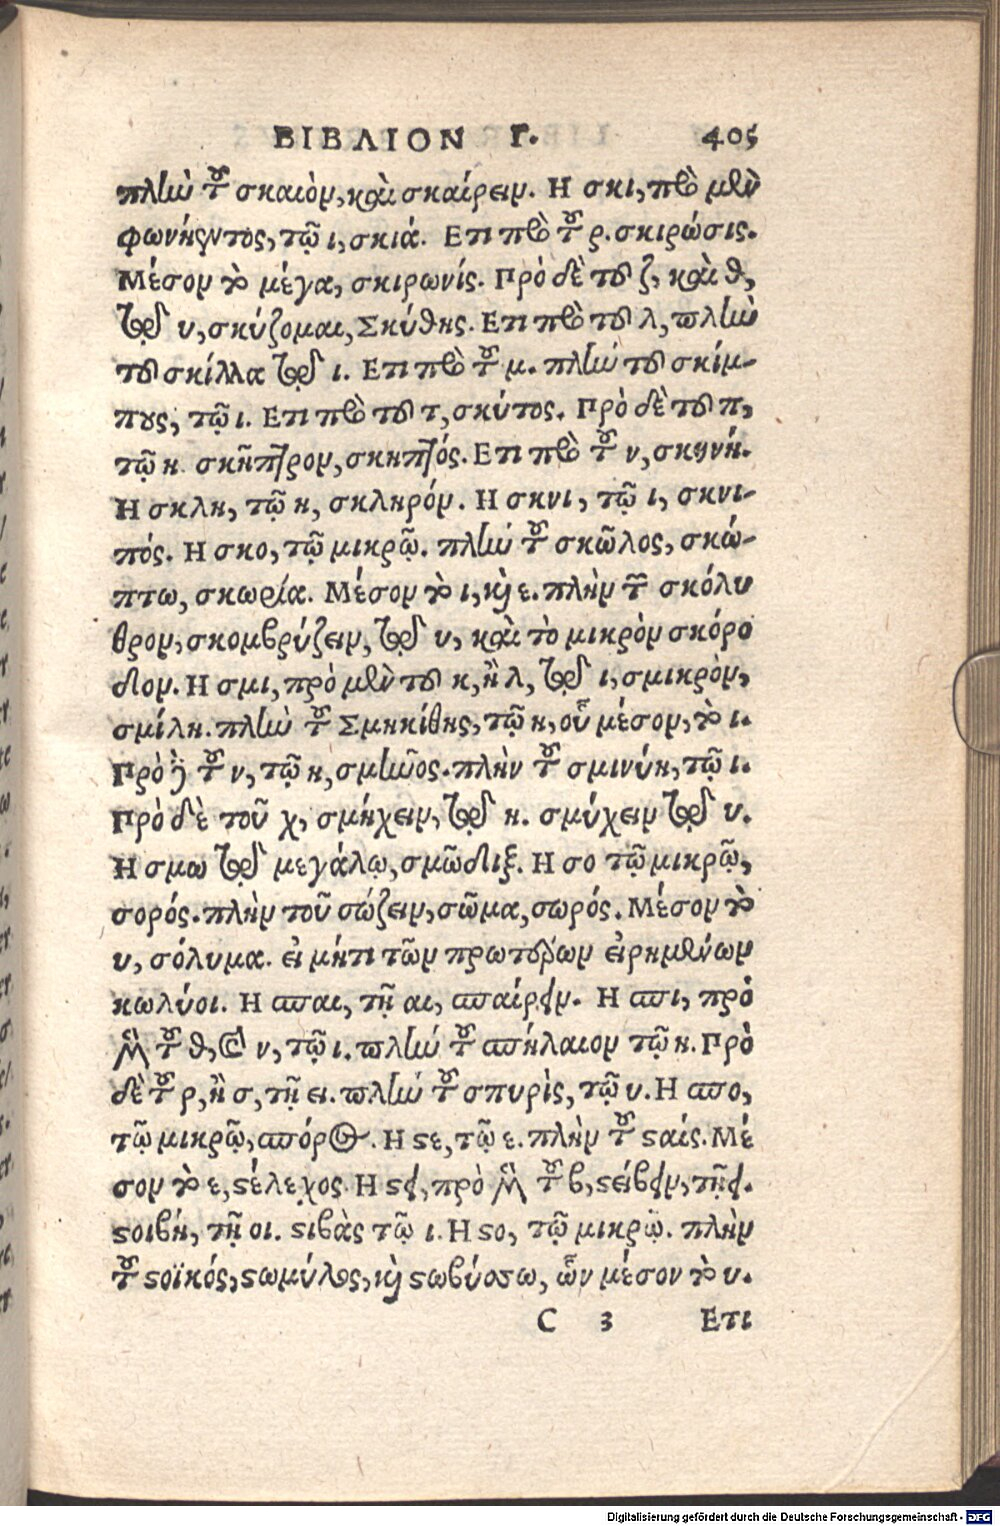 ΒΙΒΛΙΟΝ Γ. 405
πλὴν τοῦ σκαιὸν, καὶ σκαίρειν. Η σκι, πρὸ μὲν
φωνήεντος, τῷ ι, σκιά. Ετι πρὸ τοῦ ρ. σκιρώσις.
Μέσον τὸ μέγα, σκιρωνίς. Πρὸ δὲ τοῦ ζ, καὶ θ,
διὰ τοῦ υ, σκύζομαι, Σκύθης. Ετι πρὸ τοῦ λ, πλὴν
τοῦ σκίλλα διὰ τοῦ ι. Ετι πρὸ τοῦ μ. πλὴν τοῦ σκίμ-
πους, τῷ ι. Ετι πρὸ τοῦ τ, σκύτος. Πρὸ δὲ τοῦ π,
τῷ η σκῆπτρον, σκηπτός. Ετι πρὸ τοῦ ν, σκηνή.
Η σκλη, τῷ η, σκληρόν. Η σκνι, τῷ ι, σκνι-
πός. Η σκο, τῷ μικρῷ. πλὴν τοῦ σκῶλος, σκώ-
πτω, σκωρία. Μέσον τὸ ι, καὶ ε. πλὴν τοῦ σκόλυ
θρον, σκομβρύζειν, διὰ τοῦ υ, καὶ τὸ μικρὸν σκόρο
διον. Η σμι, πρὸ μὲν τοῦ κ, ἢ λ, διὰ τοῦ ι, σμικρὸν,
σμίλη. πλὴν τοῦ Σμηκίθης, τῷ η, οὗ μέσον, τὸ ι.
Πρὸ δὲ τοῦ ν, τῷ η, σμῆνος. πλὴν τοῦ σμινύη, τῷ ι.
Πρὸ δὲ τοῦ χ, σμήχειν, διὰ τοῦ η. σμύχειν διὰ τοῦ υ.
Η σμω διὰ τοῦ μεγάλῳ, σμῶδιξ. Η σο τῷ μικρῷ,
σορός. πλὴν τοῦ σώζειν, σῶμα, σωρός. Μέσον τὸ
υ, σόλυμα. εἰ μήτι τῶν πρωτέρων εἰρημένων
κωλύοι. Η σπαι, τῇ αι, σπαίρειν. Η σπι, πρὸ
μὲν τοῦ θ, καὶ ν, τῷ ι. πλὴν τοῦ σπήλαιον τῷ η. Πρὸ
δὲ τοῦ ρ, ἢ σ, τῇ ει. πλὴν τοῦ σπυρὶς, τῷ υ. Η σπο,
τῷ μικρῷ, σπόρος. Η στε, τῷ ε. πλὴν τοῦ σταίς. Μέ
σον τὸ ε, στέλεχος. Η στει, πρὸ μὲν τοῦ β, στείβειν, τῇ ει.
στοιβή, τῇ οι. στιβὰς τῷ ι. Η στο, τῷ μικρῷ. πλὴν
τοῦ στοϊκός, στωμύλος, καὶ στωβύσω, ὧν μέσον τὸ υ.
C 3 Ετι
Digitalisierung gefördert durch die Deutsche Forschungsgemeinschaft - DFG